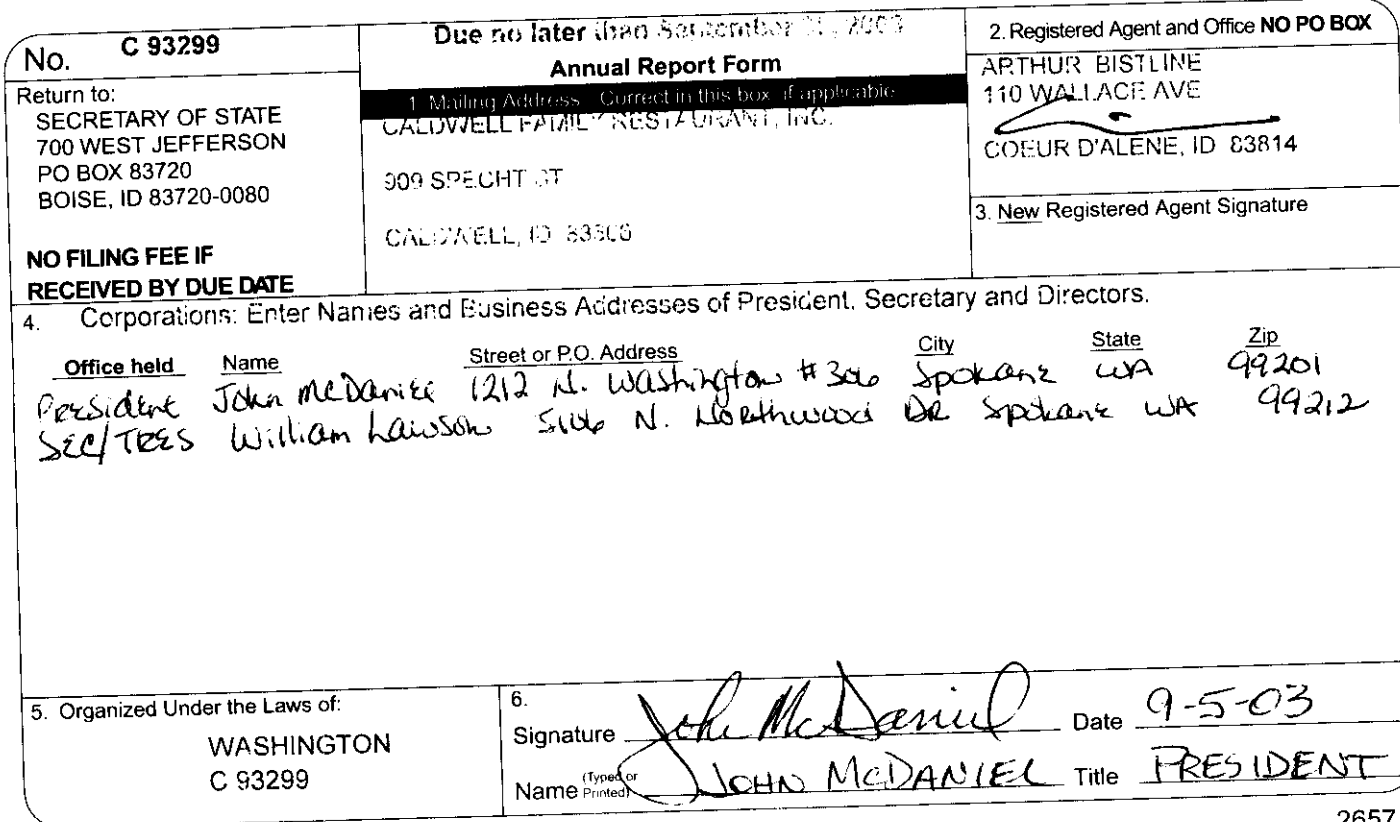 No. C 93299
Return to:
SECRETARY OF STATE
700 WEST JEFFERSON
PO BOX 83720
BOISE, ID 83720-0080
NO FILING FEE IF
RECEIVED BY DUE DATE
Due no later than September 2003
Annual Report Form
1. Mailing Address Correct in this box if applicable
CALDWELL FAMILY RESTAURANT, INC.
909 SPECHT ST
CALDWELL, ID
2. Registered Agent and Office NO PO BOX
ARTHUR BISTLINE
110 WALLACE AVE
COEUR D'ALENE, ID 83814
3. New Registered Agent Signature
4. Corporations: Enter Names and Business Addresses of President, Secretary and Directors.
Office held Name Street or P.O. Address City State Zip
President John McDaniel 1212 N. Washington #306 Spokane WA 99201
SEC/TRES William Lawson N. Northwood DR Spokane WA 99212
5. Organized Under the Laws of:
WASHINGTON
C 93299
6.
Signature John McDaniel Date 9-5-03
Name (Typed or Printed) JOHN McDANIEL Title PRESIDENT
2657